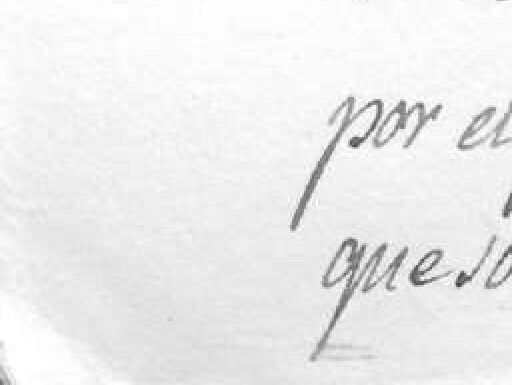 por el
que so